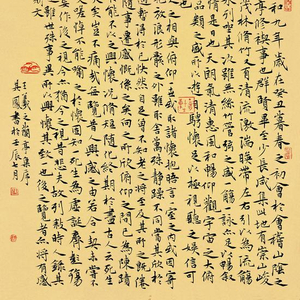 和九年歲在癸丑暮春之初會于會稽山陰之
亭脩禊事也群賢畢至少長咸集此地有崇山峻
茂林脩竹又有清流激湍映帶左右引以為流觴
水列坐其次雖無絲竹管弦之盛一觴一詠亦足以暢敘
情是日也天朗氣清惠風和暢仰觀宇宙之大俯
品類之盛所以遊目騁懷足以極視聽之娛信可
之相與俯仰一世或取諸懷抱悟言一室之內或因寄
放浪形骸之外雖趣舍萬殊靜躁不同當其欣於
得於己快然自足不知老之將至及其所之既倦
隨事遷感慨係之矣向之所欣俛仰之間已為陳跡
不以之興懷況脩短隨化終期於盡古人云死生
大矣豈不痛哉每覽昔人興感之由若合一契未嘗不
嗟悼不能喻之於懷固知一死生為虛誕齊彭殤
妄作後之視今亦猶今之視昔悲夫故列敘時人錄其
述雖世殊事異所以興懷其致一也後之覽者亦將有感
斯文
王羲之蘭亭集序
鳳書於壬辰七月